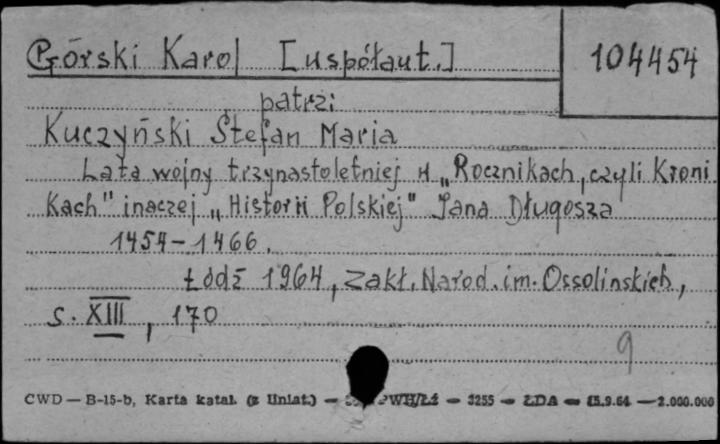 Górski Karol [uspółaut.]
104454
patrz:
Kuczyński Stefan Maria
Lata wojny trzynastoletniej w „Rocznikach, czyli Kroni
kach" inaczej „Historii Polskiej" Jana Długosza
1454-1466.
Łódź 1964, Zakł. Narod. im. Ossolinskich,
s. XIII, 170
9
CWD — B-15-b, Karta katal. (z liniat.) — PWH/Łź — 3255 — ŁDA — 15.9.64 — 2.000.000